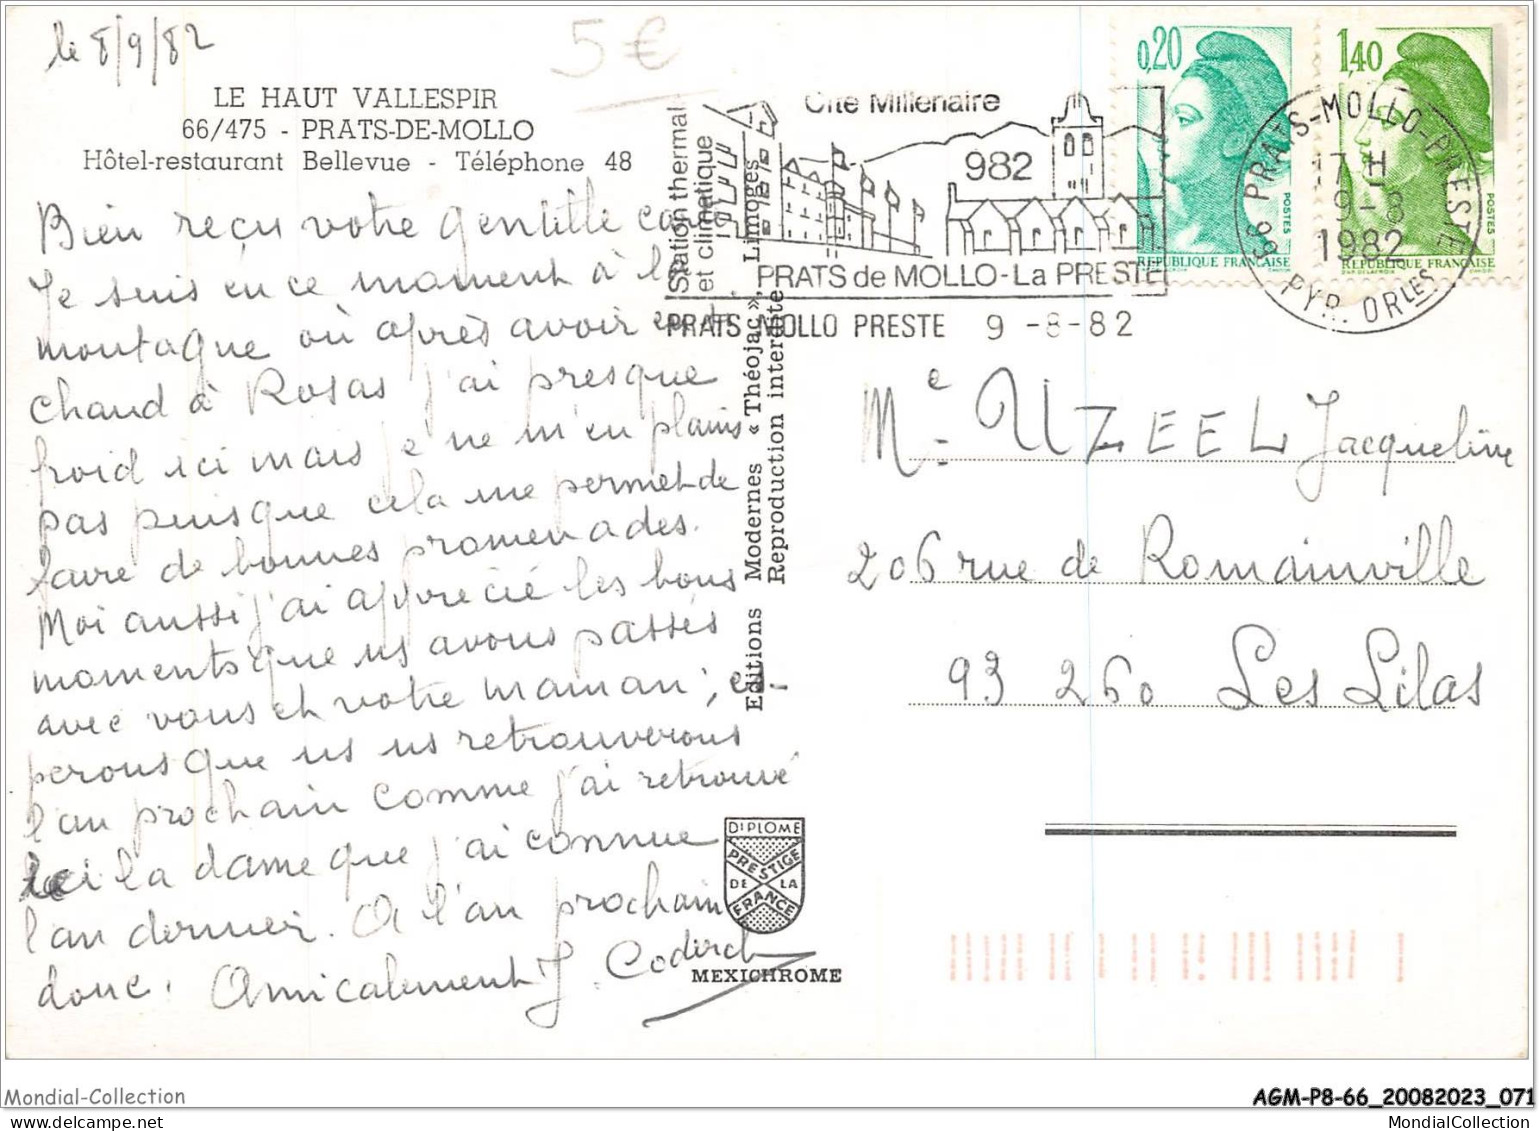 le 8/9/82
5€
LE HAUT VALLESPIR
66/475 - PRATS-DE-MOLLO
Hôtel-restaurant Bellevue - Téléphone 48
Bien reçu votre gentille carte
Je suis en ce moment à la
montagne où après avoir eu t.
chaud à Rosas j'ai presque
froid ici mais je ne m'en plains
pas puisque cela me permet de
faire de bonnes promenades.
Moi aussi j'ai apprécié les bons
moments que ns avons passés
avec vous et votre maman; es-
perons que ns ns retrouverons
l'an prochain comme j'ai retrouvé
ici la dame que j'ai connue
l'an dernier. A l'an prochain
donc. Amicalement J. Coderch
Station thermale
et climatique
Cité Millénaire
982
PRATS de MOLLO-La PRESTE
PRATS MOLLO PRESTE 9 -8-82
0,20
POSTES
REPUBLIQUE FRANÇAISE
1,40
POSTES
REPUBLIQUE FRANÇAISE
66 PRATS-MOLLO-PRESTE
17 H
9-8
1982
PYR. ORLES
Editions Modernes « Théojac », Limoges
Reproduction interdite
Me UZEEL Jacqueline
206 rue de Romainville
93 260 Les Lilas
DIPLOME
PRESTIGE
DE LA
FRANCE
MEXICHROME
Mondial-Collection
AGM-P8-66_20082023_071
MondialCollection.com